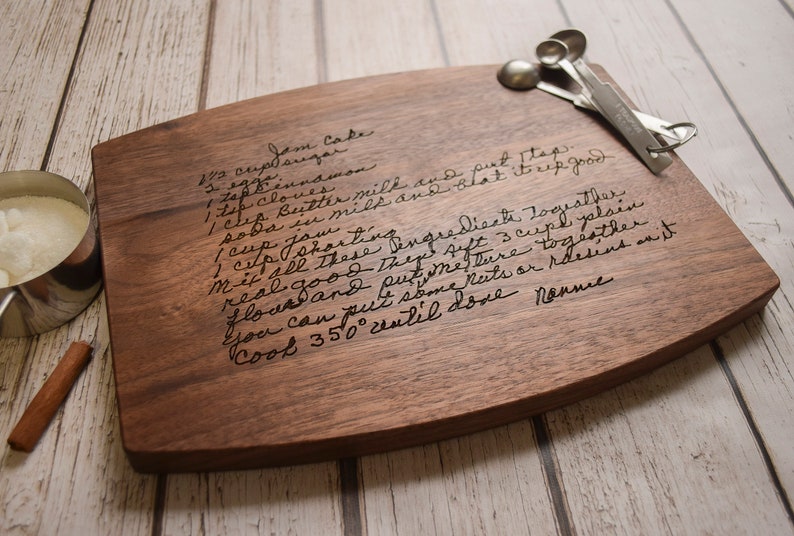 Jam Cake
1½ cup sugar
2 eggs
1 tsp cinnamon
1 tsp cloves
1 cup Butter milk and put 1 tsp.
soda in milk and beat it up good
1 cup jam
1 cup shorting
Mix all these ingredients together
real good then sift 3 cups plain
flour and put meture together
you can put some nuts or raisins in it
Cook 350° until done Nonnie